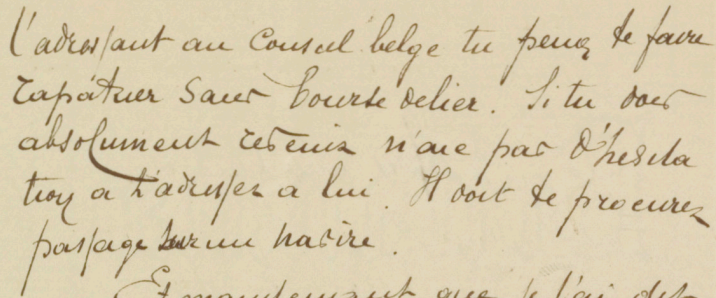 t'adressant au Consul belge tu peux te faire
rapatrier sans bourse delier. Si tu dois
absolument revenir n'aie pas d'hesita
tion a t'adresser a lui. Il doit te procurer
passage sur un navire.
Et maintenant que je t'ai dit